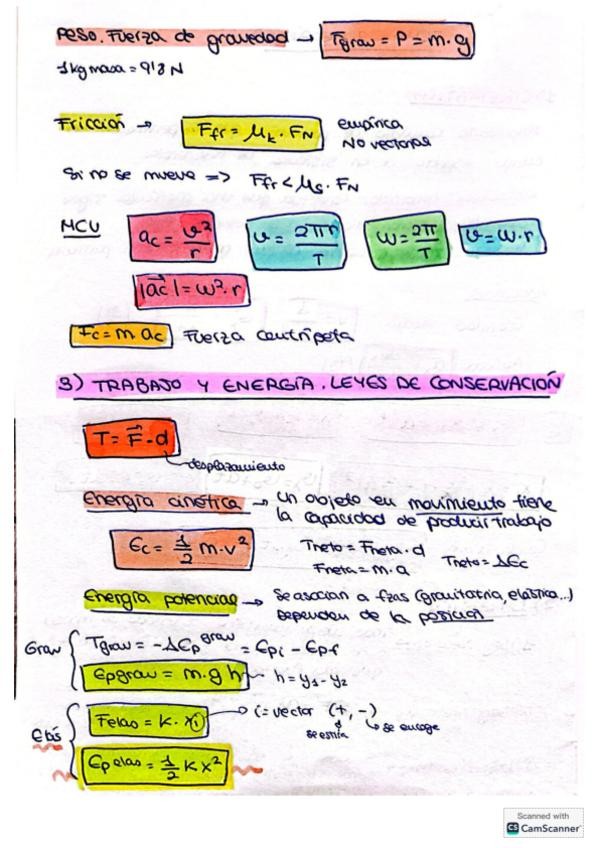 Peso. Fuerza de gravedad → Fgrav = P = m·g
1kg masa = 9'8 N
Fricción → Ffr = μk · FN empírica
No vectorial
Si no se mueve => Ffr < μs · FN
MCU ac = v²/r v = 2πr/T ω = 2π/T v = ω·r
|ac⃗| = ω²·r
Fc = m·ac Fuerza centrípeta
3) TRABAJO Y ENERGÍA. LEYES DE CONSERVACIÓN
T = F⃗·d
desplazamiento
Energía cinética → Un objeto en movimiento tiene
la capacidad de producir trabajo
Ec = 1/2 m·v² Tneto = Fneta·d
Fneta = m·a Tneto = ΔEc
Energía potencial → Se asocian a fzas (gravitatoria, elástica...)
Dependen de la posición
Grav Tgrav = -ΔEp grav = Epi - Epf
Epgrav = m·g·h h = y₁ - y₂
Elás Felas = K · x i = vector (+, -)
se estira se encoge
Ep elas = 1/2 K x²
Scanned with
CS CamScanner